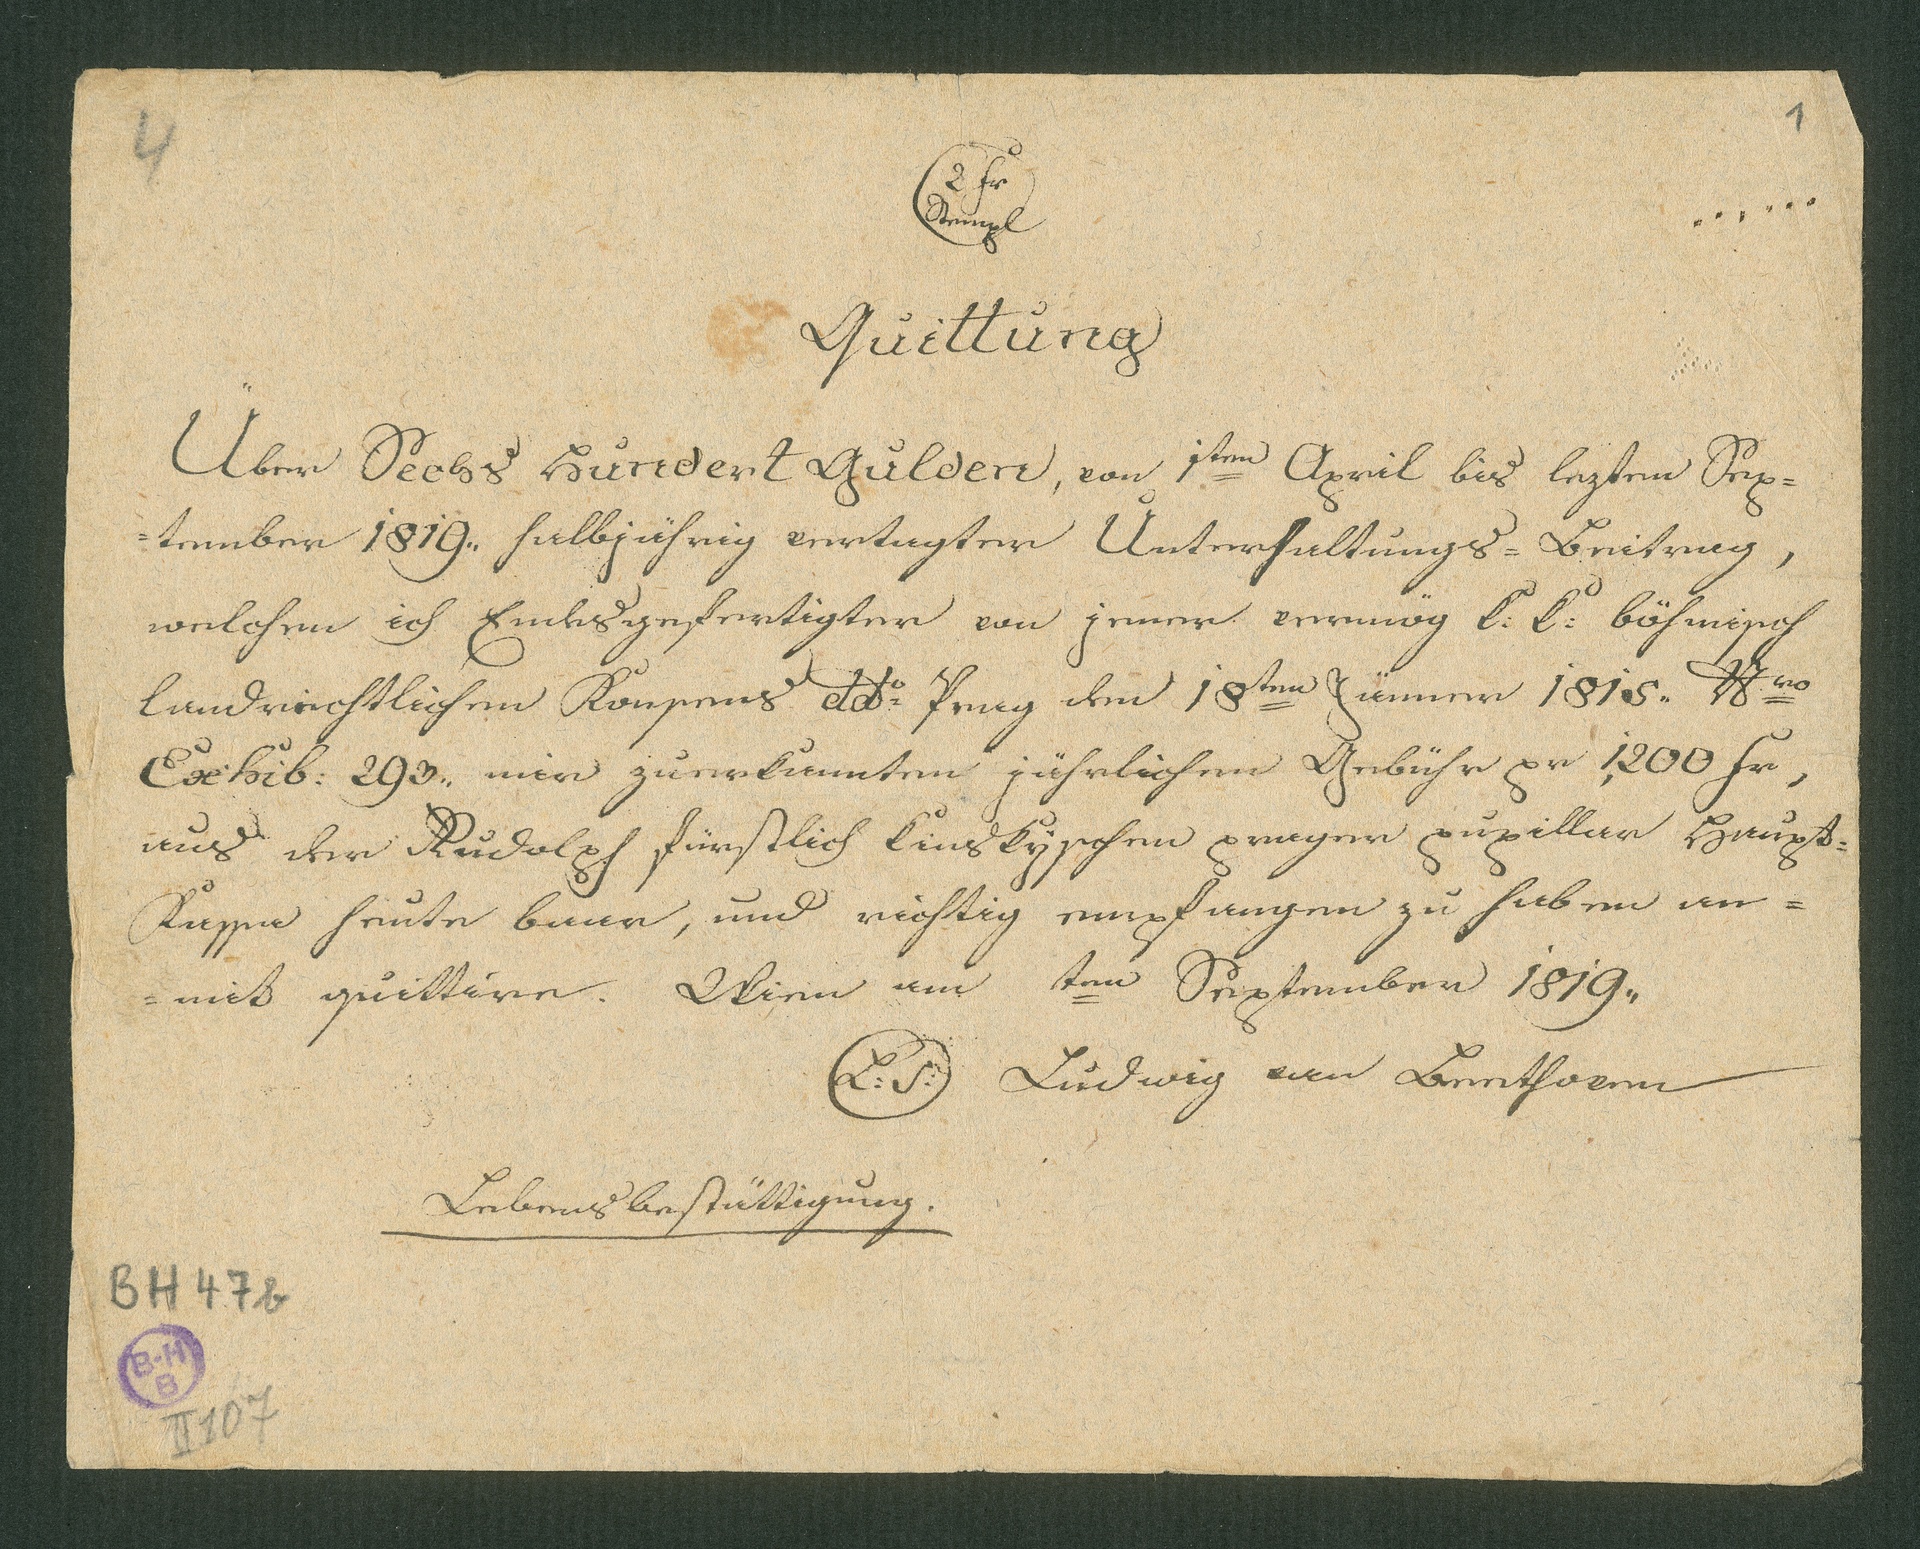 4
1
2 fr
Stempl
Quittung
Über Sechs Hundert Gulden, von 1ten April bis leztem Sep=
=tember 1819. halbjährig vertagter Unterhaltungs=Beitrag,
welchen ich Endesgefertigter von jener vermög k: k: böhmisch
landrechtlichen Konsens ddo: Prag den 18ten Jänner 1815. Nro
Exhib: 293. mir zuerkannten jährlichen Gebühr pr 1,200 fr,
aus der Rudolph fürstlich Kinskyschen prager pupillar Haupt=
Kassa heute baar, und richtig empfangen zu haben an=
=mit quittire. Wien am ten September 1819.
L: S: Ludwig van Beethoven
Lebensbestättigung.
BH 47b
B-H
B
II 107